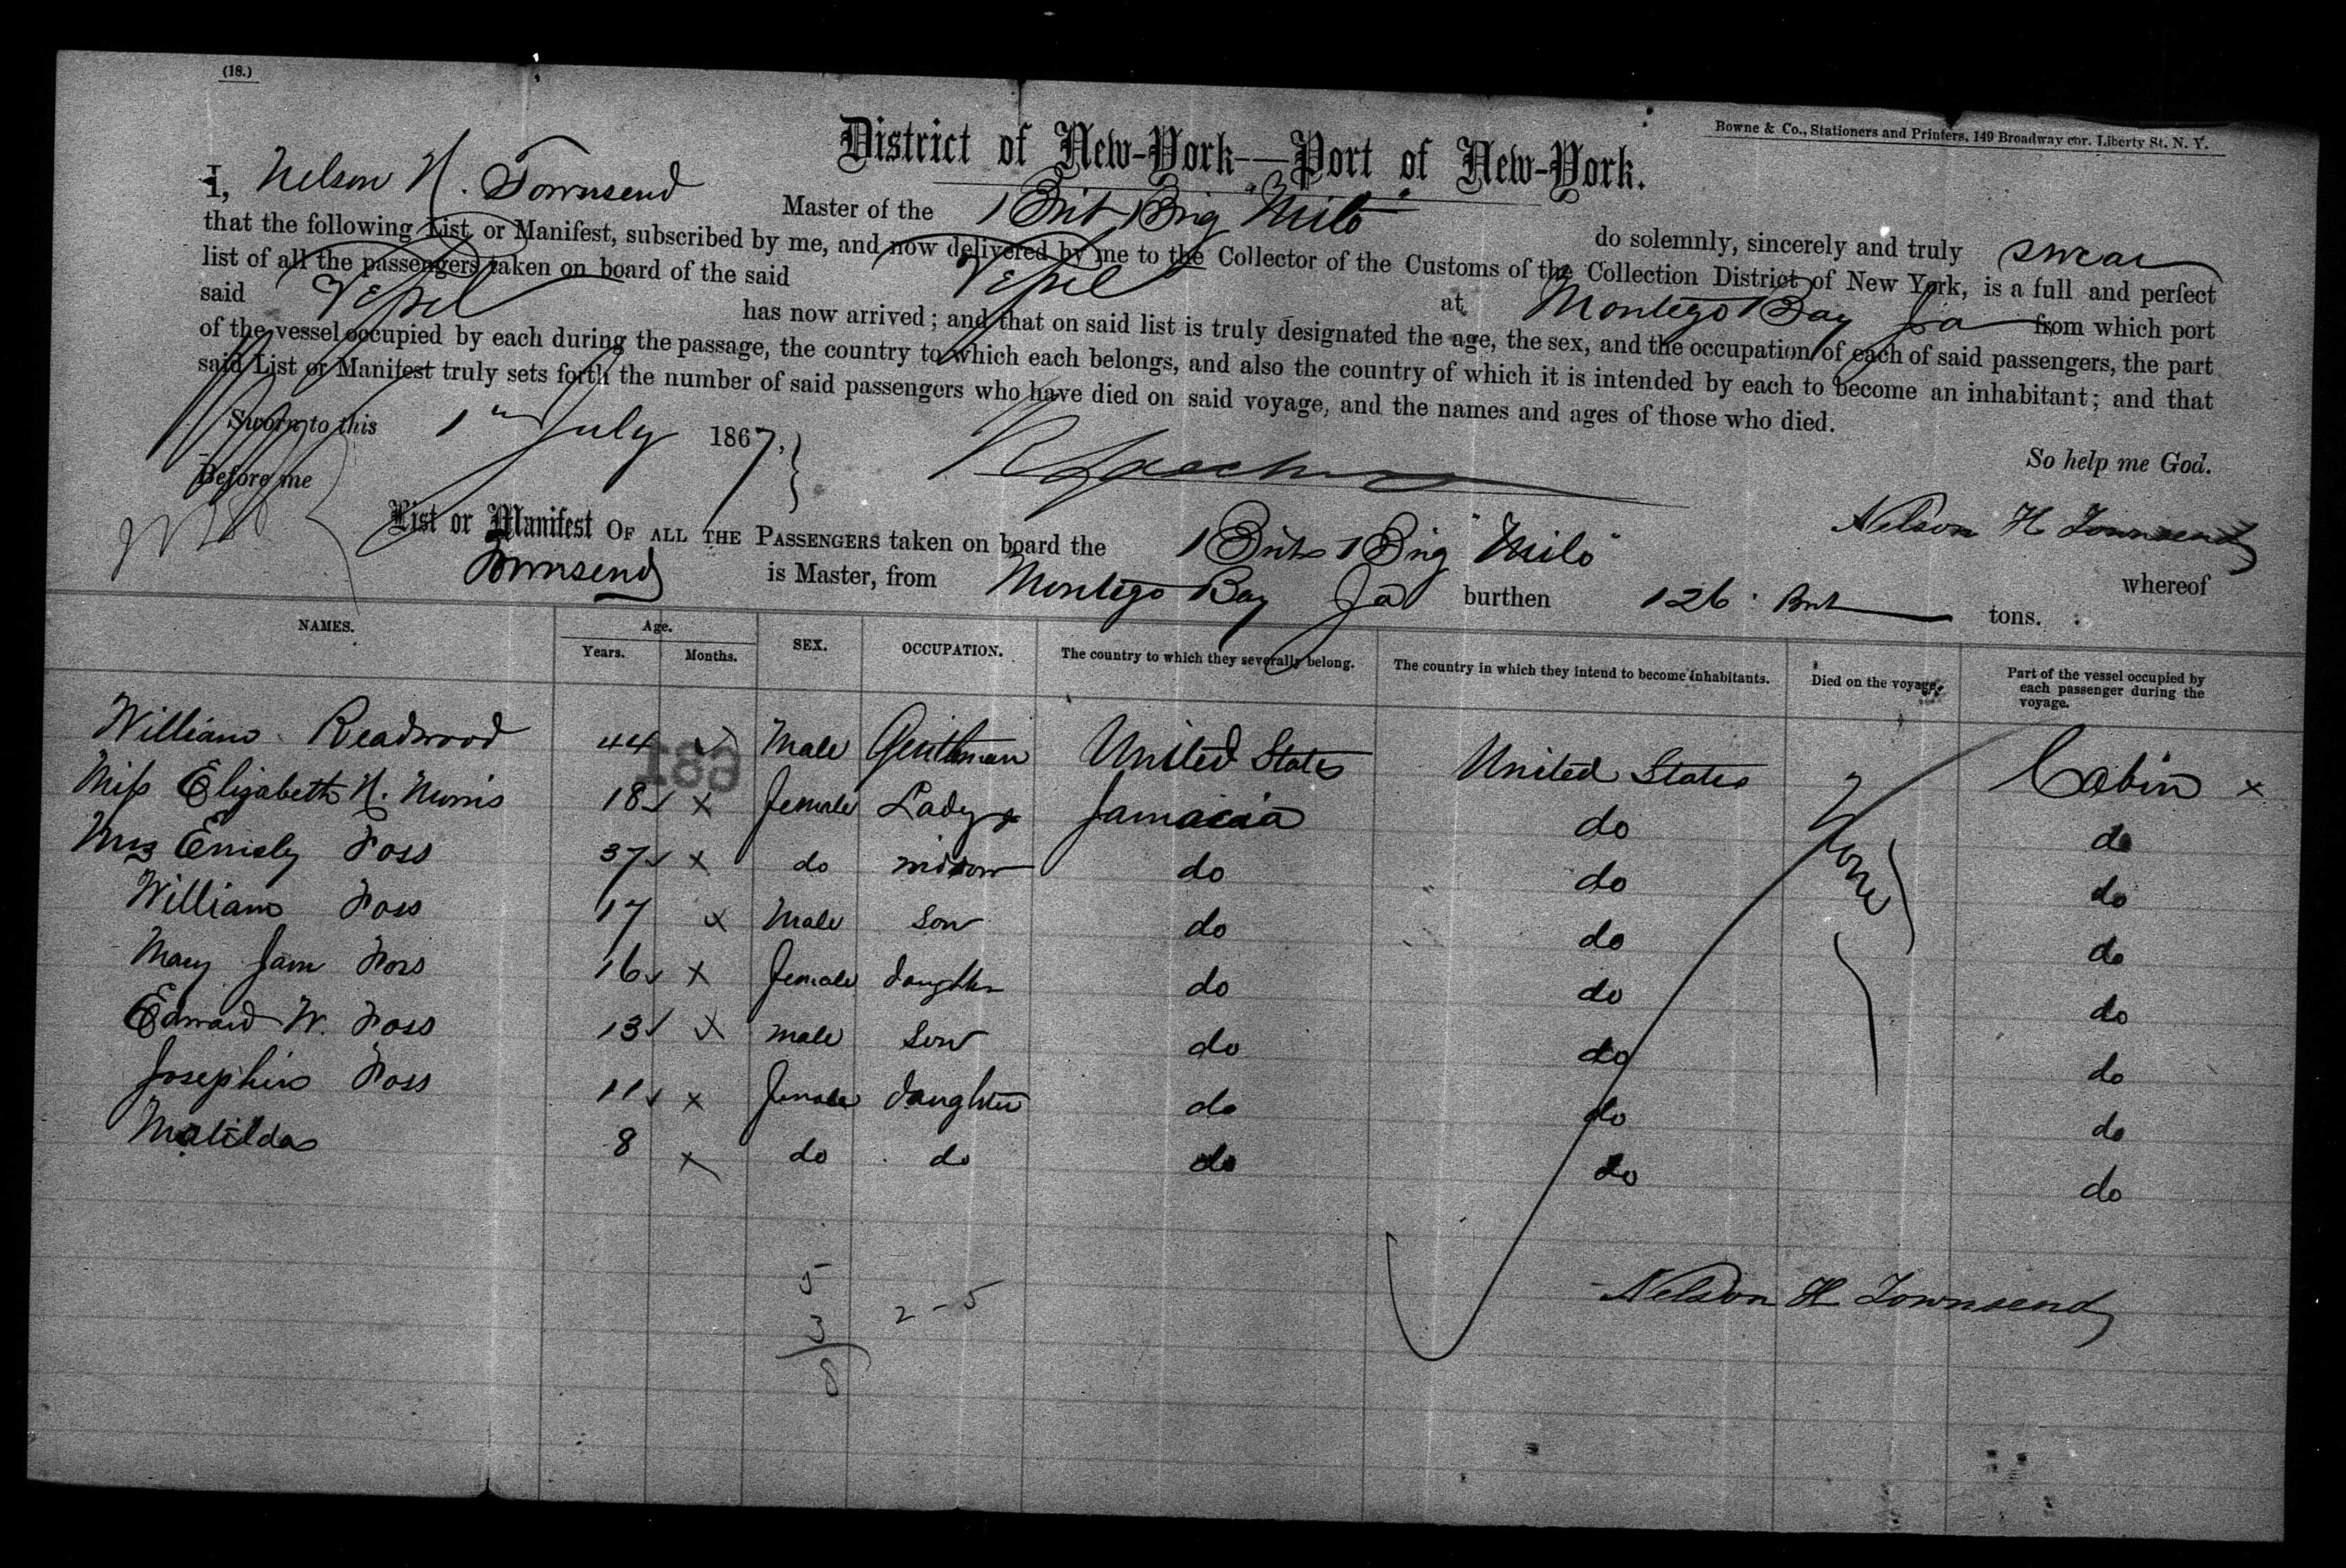 (18.)
Bowne & Co., Stationers and Printers, 149 Broadway cor. Liberty St. N. Y.
District of New-York—Port of New-York.
I, Nelson H. Townsend Master of the Brit Brig "Milo" do solemnly, sincerely and truly swear
that the following List or Manifest, subscribed by me, and now delivered by me to the Collector of the Customs of the Collection District of New York, is a full and perfect
list of all the passengers taken on board of the said Vessel at Montego Bay Ja from which port
said Vessel has now arrived; and that on said list is truly designated the age, the sex, and the occupation of each of said passengers, the part
of the vessel occupied by each during the passage, the country to which each belongs, and also the country of which it is intended by each to become an inhabitant; and that
said List or Manifest truly sets forth the number of said passengers who have died on said voyage, and the names and ages of those who died.
So help me God.
Sworn to this 1 July 1867.
Before me
Nelson H Townsend
List or Manifest OF ALL THE PASSENGERS taken on board the Brit Brig "Milo" whereof
Townsend is Master, from Montego Bay Ja burthen 126 tons.
NAMES. Age. Years. Months. SEX. OCCUPATION. The country to which they severally belong. The country in which they intend to become inhabitants. Died on the voyage. Part of the vessel occupied by each passenger during the voyage.
189
William Readwood 44 Male Gentleman United States United States Cabin x
Miss Elizabeth H. Morris 18 x female Lady Jamacia do do
Mrs Emiely Foss 37 x do widow do do do
William Foss 17 x Male Son do do do
Mary Jam Foss 16 x female daughter do do do
Edward W. Foss 13 x male Son do do do
Josephine Foss 11 x female daughter do do do
Matilda 8 x do do do do do
None
5
3
8
2-5
Nelson H Townsend